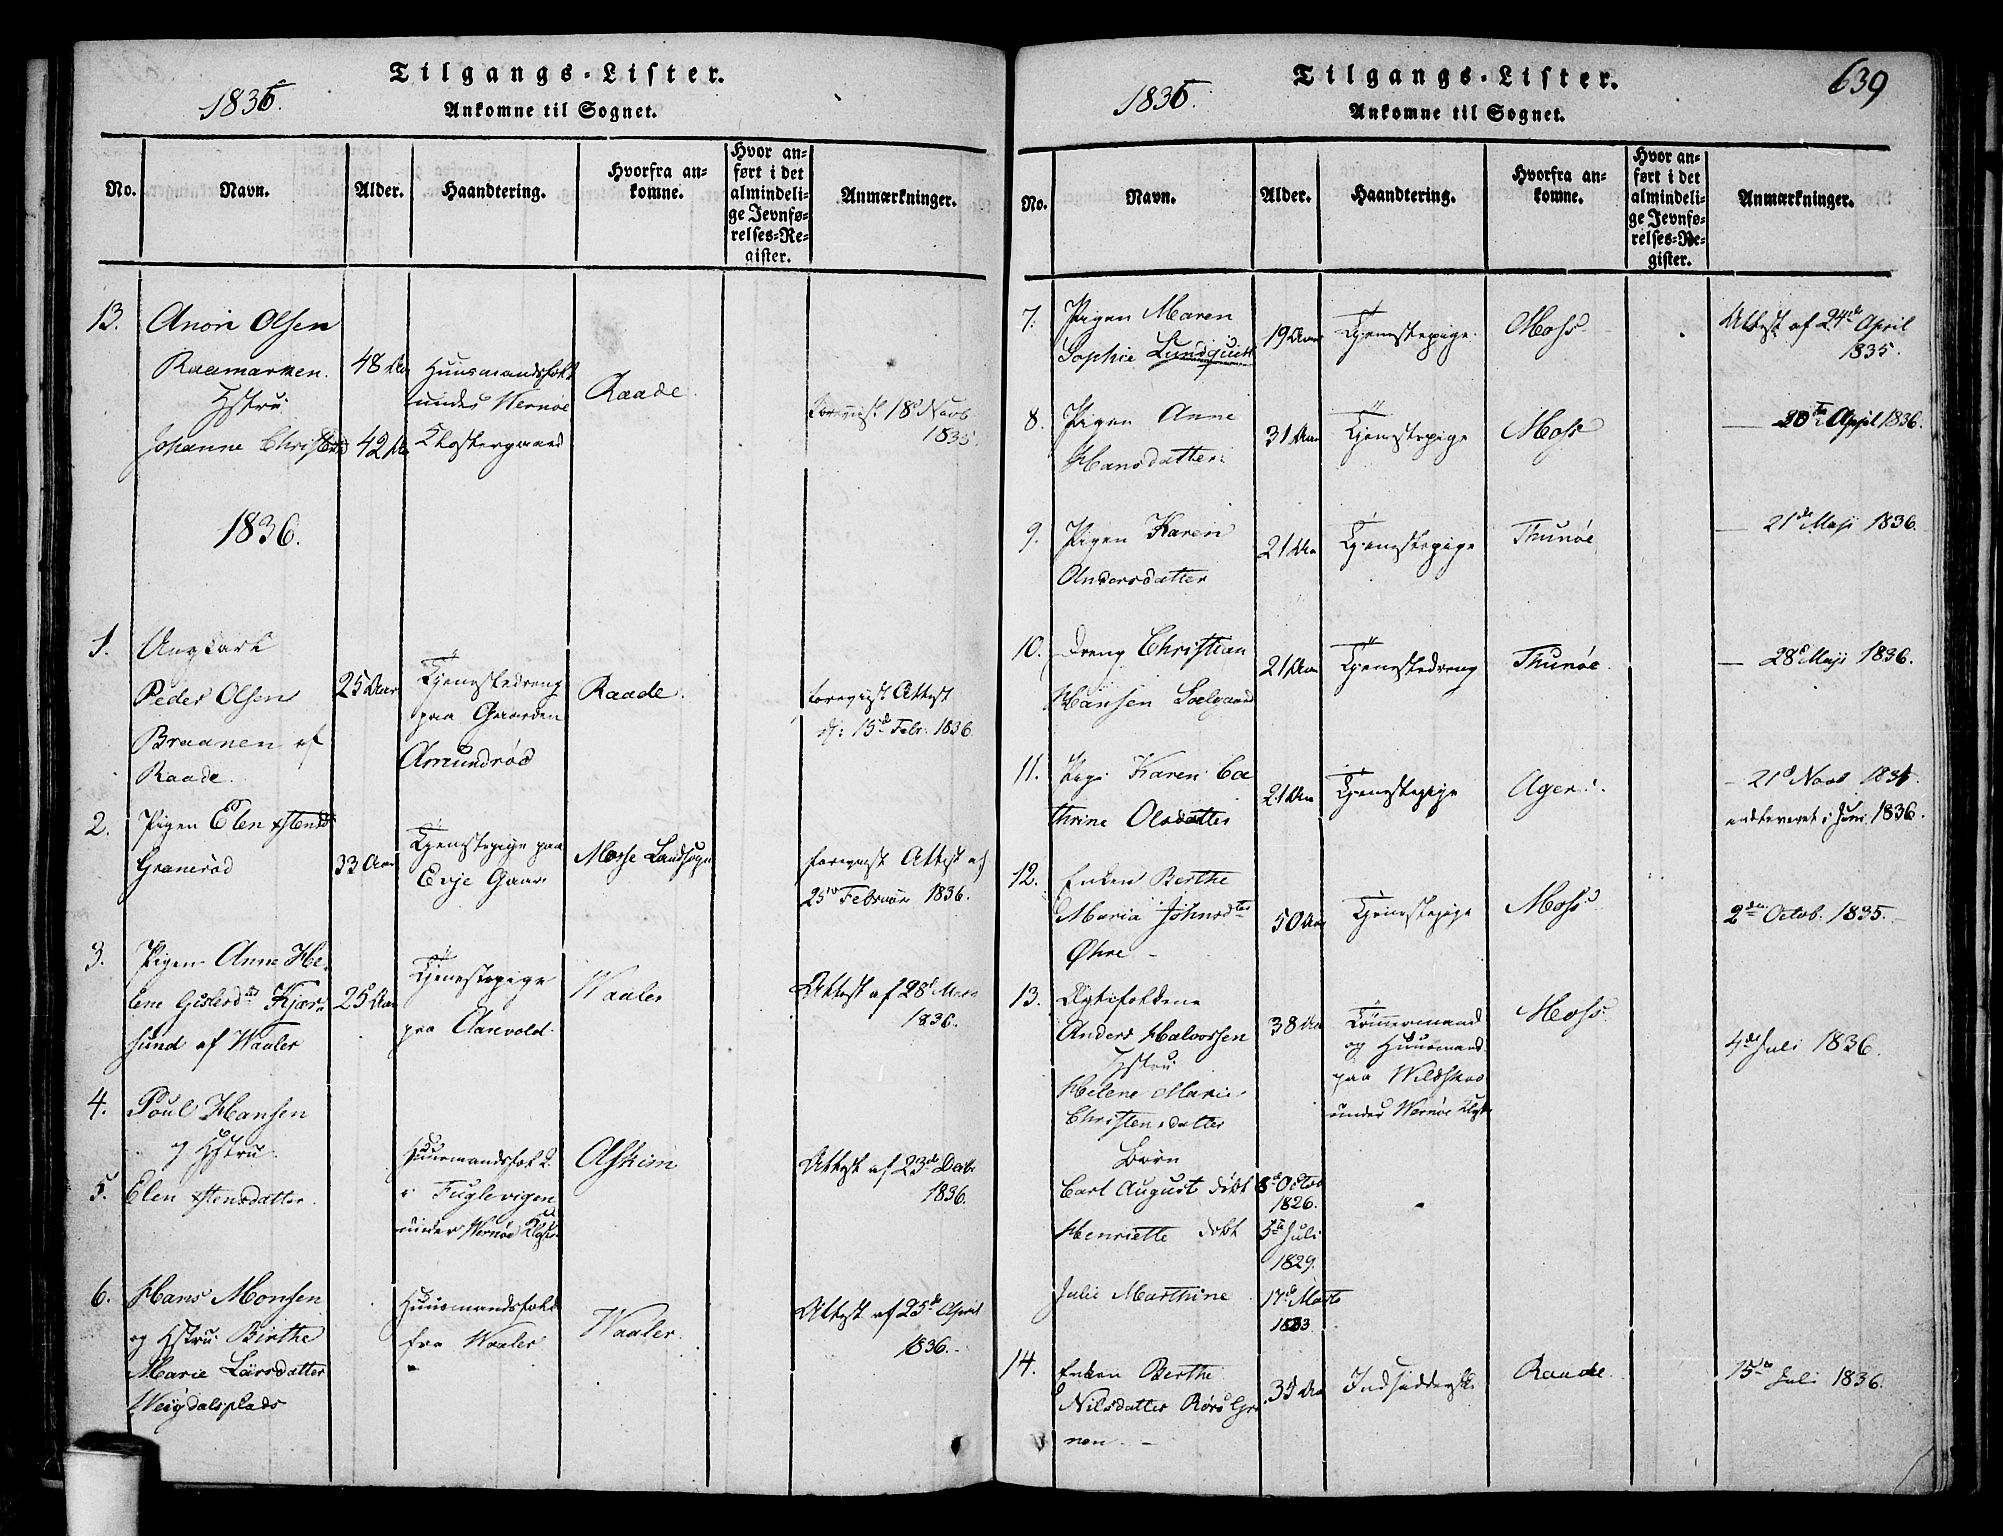 Tilgangs-Lister.
1836.
Ankomne til Sognet.
No.
Navn.
Alder.
Haandtering.
Hvorfra ankomne.
Hvor anført i det almindelige Jevnførelses-Register.
Anmærkninger.
13.
Olsen
Raamarken
Hstru
Johanne
48 Aar
42 Aar
Huusmandsfolk
under Wernøe
Klostergaard
Raade
forevist 18d Novb
1835.
1836.
1.
Ungkarl
Peder Olsen
Braanen af
Raade.
25 Aar
Tjenestedreng
paa Gaarden
Amundrød
Raade.
forevist Attest
d: 15de Febr. 1836
2.
Pigen Elen
Granerød
33 Aar
Tjenestepige paa
Evje Gaard
Mosse Landsogn
forevist Attest af
25 Februar 1836.
3.
Pigen Anne He-
lene Gislersdtr Kjær-
sund af Waaler
25 Aar
Tjenestepige
paa
Waaler
Attest af 28d
1836.
4.
Poul Hansen
og Hstru
5.
Elen
Huusmandsfolk
i Fuglevigen
under Wernøe Kloster
Attest af 23de Decbr
1836.
6.
Hans Monsen
og Hstru Birthe
Marie Larsdatter
Weigdalsplads
Huusmandsfolk
fra Waaler
Waaler.
Attest af 25de April
1836.
Tilgangs-Lister.
639
1836.
Ankomne til Sognet.
No.
Navn.
Alder.
Haandtering.
Hvorfra ankomne.
Hvor anført i det almindelige Jevnførelses-Register.
Anmærkninger.
7.
Pigen Maren
Sophie Lundquist
19 Aar
Tjenestepige
Moss
Attest af 24de April
1835.
8.
Pigen Anne
Hansdatter
31 Aar
Tjenestepige
Moss
— 20de April 1836.
9.
Pigen Karen
Andersdatter
21 Aar
Tjenestepige
Thunøe
— 21de Maji 1836.
10.
Dreng Christian
Hansen
21 Aar
Tjenestedreng
Thunøe.
— 28d Maji 1836.
11.
Pige Karen Ca
thrine Olsdatter
21 Aar
Tjenestepige
Ager
— 21d Novb
i Juni 1836.
12.
Enken Berthe
Maria Johnsdtr
Øhre —
50 Aar
Tjenestepige
Moss
2den Octob. 1835.
13.
Ægtefolkene
Anders Halvorsen
Hstru
Helene Marie
Christensdatter
Børn
Carl August født
Henriette født
Julie Marthine
38 Aar
8d Octob
1826.
5te Juli
1829.
17d Marts
1833
Tømmermand
og Huusmand
paa
under Wernøe Kloster
Moss
4de Juli 1836.
14.
Enken Berthe
Nilsdatter
35 Aar
Indsidderske
Raade
15de Juli 1836.